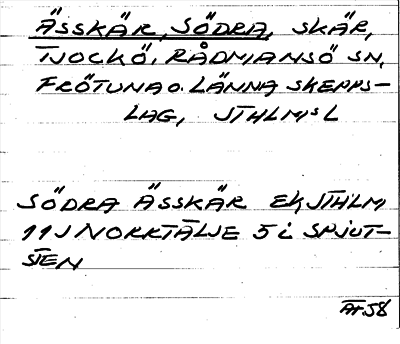 ÄSSKÄR, SÖDRA, SKÄR,
TJOCKÖ, RÅDMANSÖ SN,
FRÖTUNA O. LÄNNA SKEPPS-
LAG, STHLMS L
SÖDRA ÄSSKÄR EK STHLM
11J NORRTÄLJE 5i SPJUT-
STEN